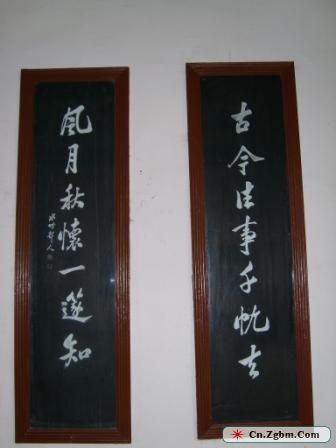 古今往事千帆去
風月秋懷一篴知
Cn.Zgbm.Com